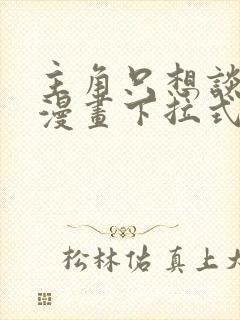 主角只想談
漫畫下拉式
松林佑 真上大